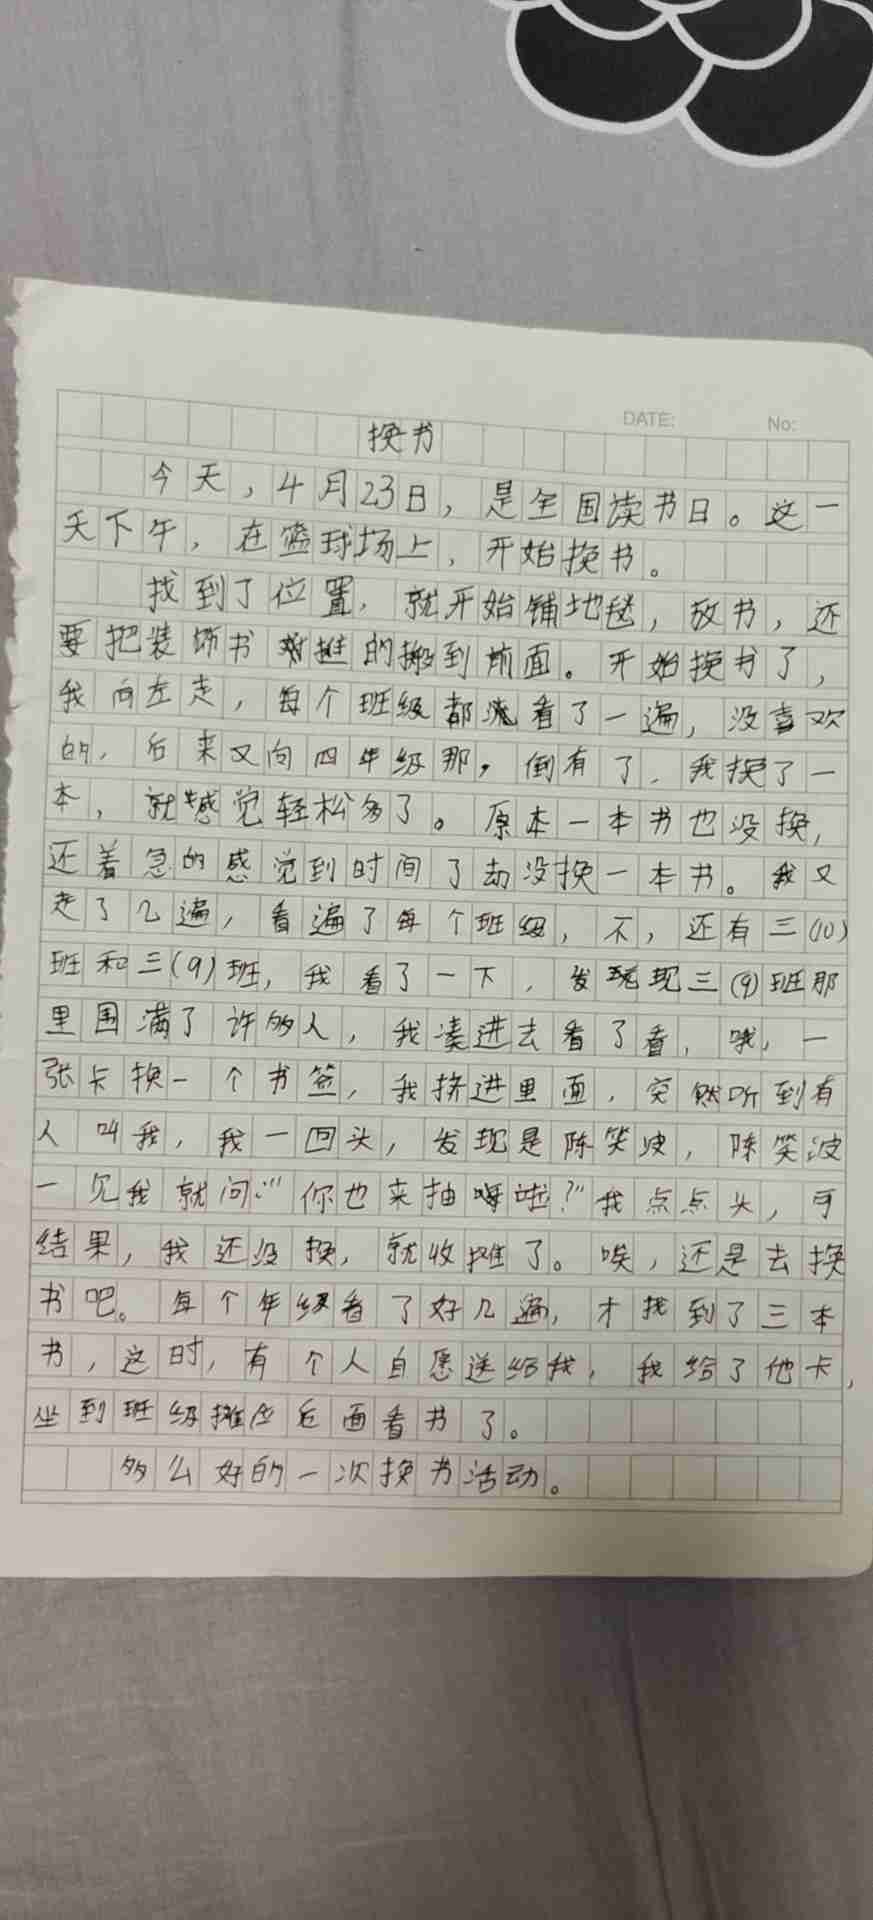 DATE: No:
换书
今天，4月23日，是全国读书日。这一
天下午，在篮球场上，开始换书。
找到了位置，就开始铺地毯，放书，还
要把装饰书摊的搬到前面。开始换书了，
我向左走，每个班级都流看了一遍，没喜欢
的，后来又向四年级那，倒有了，我换了一
本，就感觉轻松多了。原本一本书也没换，
还着急的感觉到时间了却没换一本书。我又
走了几遍，看遍了每个班级，不，还有三(10)
班和三(9)班，我看了一下，发现三(9)班那
里围满了许多人，我凑进去看了看，哦，一
张卡换一个书签，我挤进里面，突然听到有
人叫我，我一回头，发现是陈笑波，陈笑波
一见我就问:“你也来抽啦?”我点点头，可
结果，我还没换，就收摊了。唉，还是去换
书吧。每个年级看了好几遍，才找到了三本
书，这时，有个人自愿送给我，我给了他卡，
坐到班级摊位后面看书了。
多么好的一次换书活动。